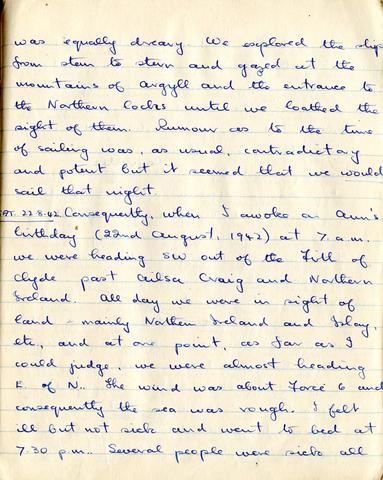 was equally dreary. We explored the ship
from stem to stern and gazed at the
mountains of Argyll and the entrance to
the Northern Lochs until we loathed the
sight of them. Rumour as to the time
of sailing was, as usual, contradictory
and potent but it seemed that we would
sail that night.
22.8.42 Consequently, when I awoke on Ann's
birthday (22nd August, 1942) at 7 a.m.
we were heading SW out of the Firth of
Clyde past Ailsa Craig and Northern
Ireland. All day we were in sight of
land - mainly Northern Ireland and Islay,
etc, and at one point, as far as I
could judge, we were almost heading
E. of N.. The wind was about Force 6 and
consequently the sea was rough. I felt
ill but not sick and went to bed at
7.30 p.m.. Several people were sick all